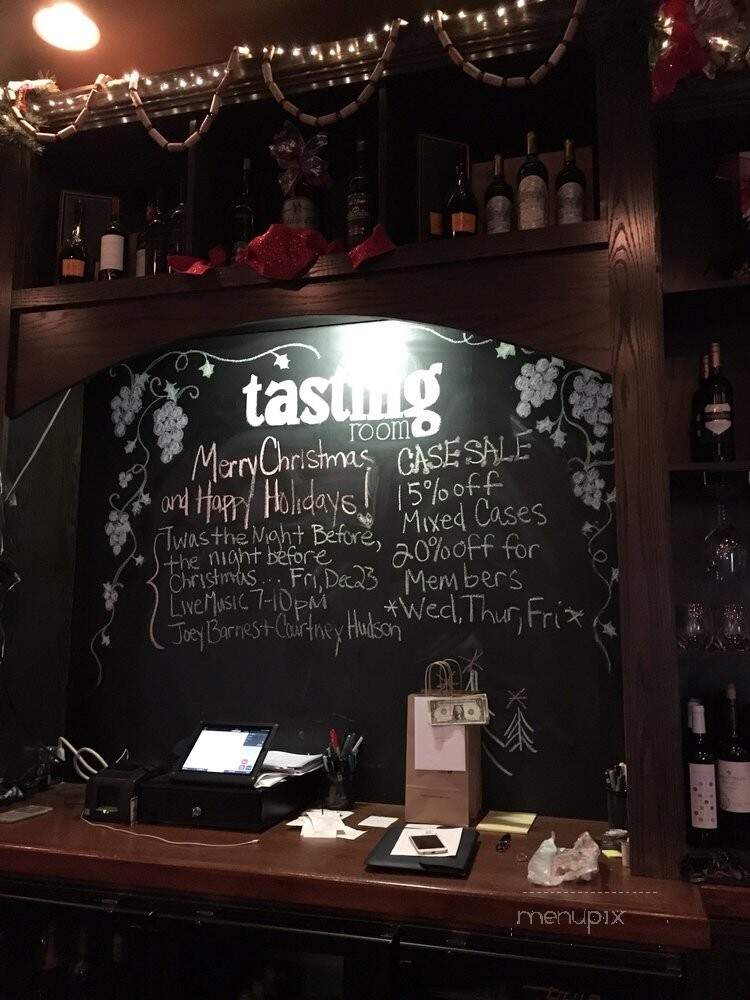 tasting
room
Merry Christmas
and Happy Holidays!
'Twas the Night Before,
the night before
Christmas... Fri, Dec 23
Live Music 7-10pm
Joey Barnes + Courtney Hudson
CASE SALE
15% off
Mixed Cases
20% off for
Members
*Wed, Thur, Fri*
menupix